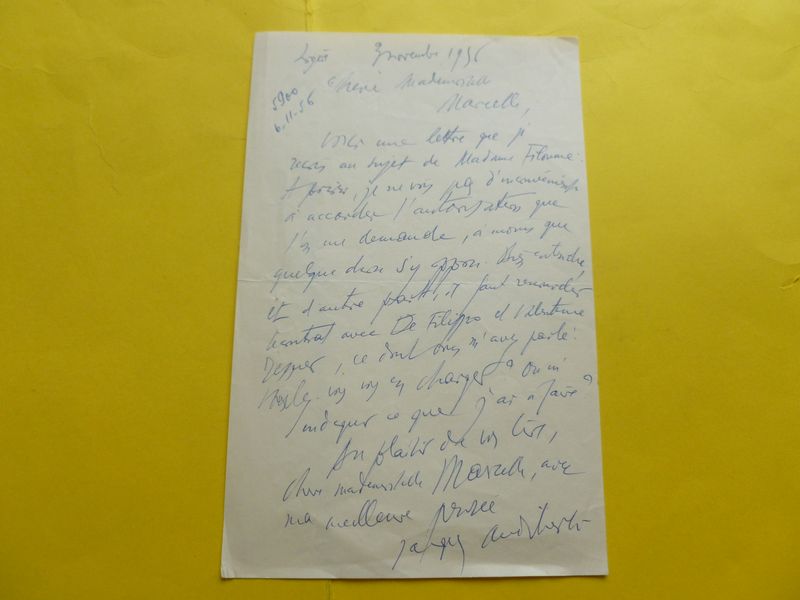 3 novembre 1956
5900
6.11.56
Chère Mademoiselle
Marcelle,
Voici une lettre que je
reçois au sujet de Madame Filoumé.
A priori, je ne vois pas d'inconvénients
à accorder l'autorisation que
l'on me demande, à moins que
quelque chose s'y oppose.
et d'autre part, il faut renouveler
contrat avec De Filippo et
, ce dont vous m'avez parlé.
Voulez-vous vous en charger ? ou m'
indiquer ce que j'ai à faire ?
Au plaisir de vous lire,
chère mademoiselle Marcelle, avec
ma meilleure pensée
Jacques Audiberti